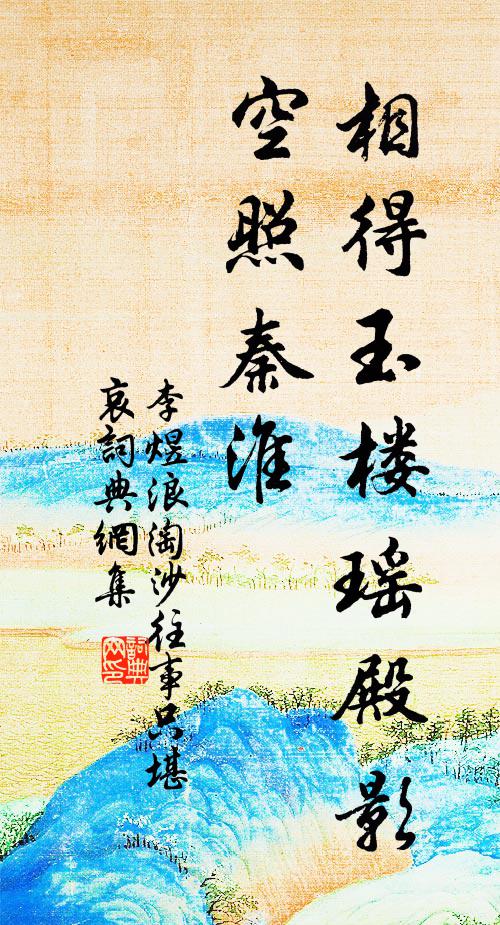 相得玉楼瑶殿影
空照秦淮
李煜浪淘沙往事只堪
哀詞典網集
詞典
网印